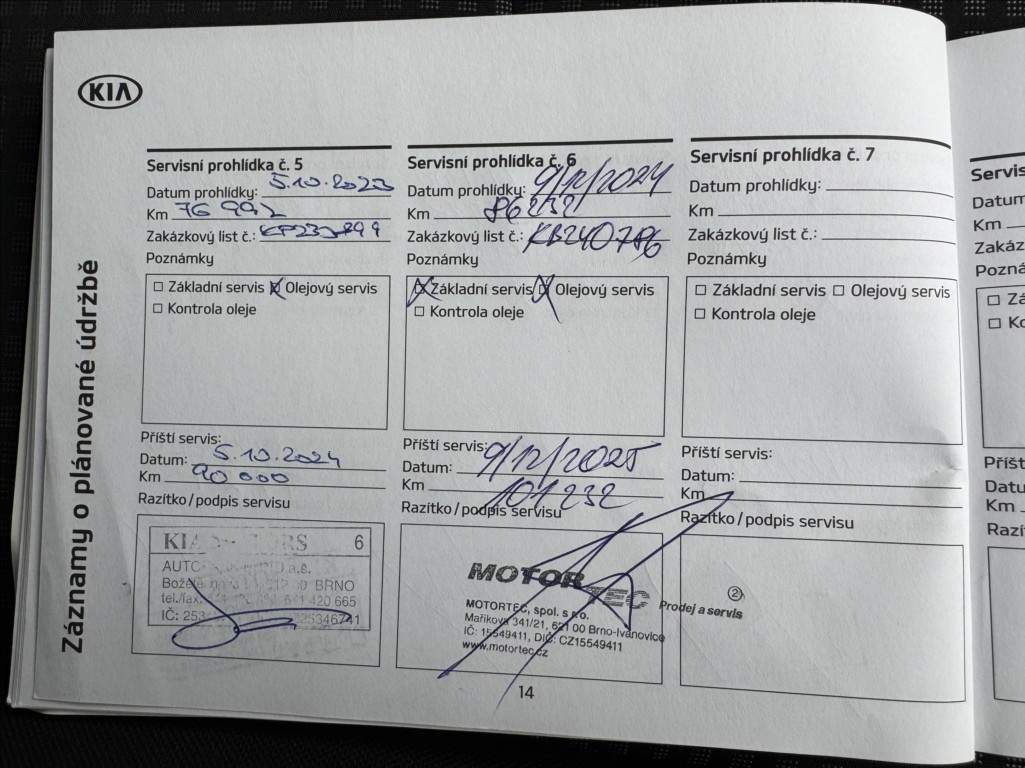 KIA
Záznamy o plánované údržbě
Servisní prohlídka č. 5
Datum prohlídky: 5.10.2023
Km 76 992
Zakázkový list č.:
Poznámky
Základní servis Olejový servis
Kontrola oleje
Příští servis:
Datum: 5.10.2024
Km 90 000
Razítko/podpis servisu
KIA MOTORS 6
AUTO
BRNO
tel./fax. 420 665
IČ: 253
Servisní prohlídka č. 6
Datum prohlídky: 9/12/2024
Km 86232
Zakázkový list č.: KB240786
Poznámky
Základní servis Olejový servis
Kontrola oleje
Příští servis:
Datum: 9/12/2025
Km 101 232
Razítko/podpis servisu
MOTORTEC
2
Prodej a servis
MOTORTEC, spol. s r.o.
Maříkova 341/21, 621 00 Brno-Ivanovice
IČ: 15549411, DIČ: CZ15549411
www.motortec.cz
Servisní prohlídka č. 7
Datum prohlídky:
Km
Zakázkový list č.:
Poznámky
Základní servis Olejový servis
Kontrola oleje
Příští servis:
Datum:
Km
Razítko/podpis servisu
14
Servis
Datum
Km
Zakáz
Pozná
Zá
Ko
Příšt
Datu
Km
Razí